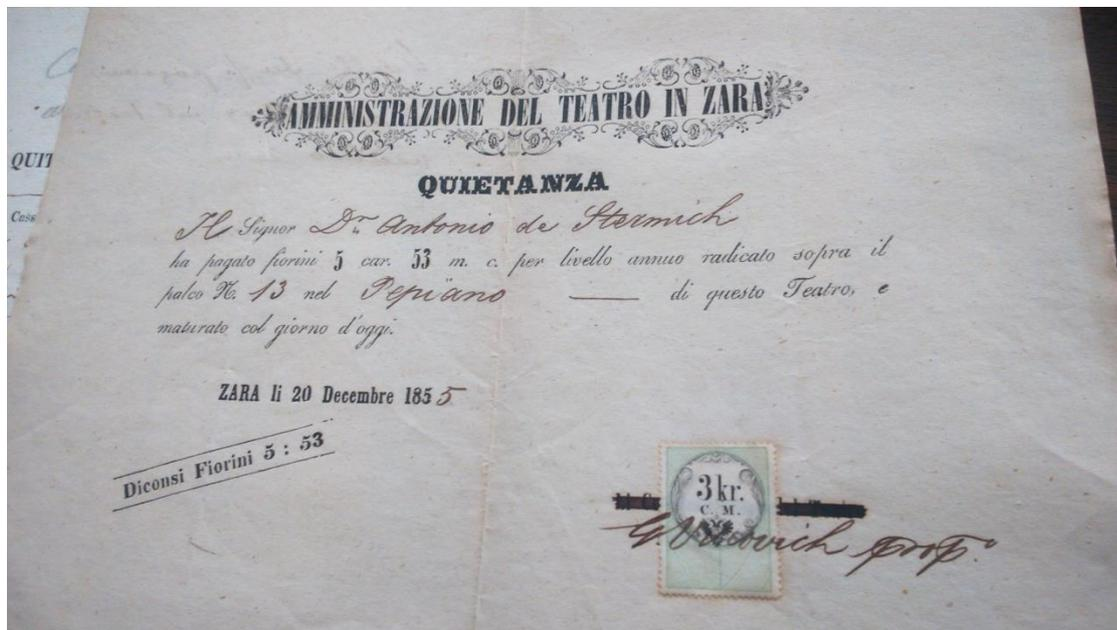 AMMINISTRAZIONE DEL TEATRO IN ZARA
QUIETANZA
Il Signor Dr. Antonio de Stermich
ha pagato fiorini 5 car. 53 m. c. per livello annuo radicato sopra il
palco N. 13 nel Pepiano — di questo Teatro, e
maturato col giorno d'oggi.
ZARA li 20 Decembre 1855
Diconsi Fiorini 5 : 53
3 kr.
C. M.
QUIT
Cass